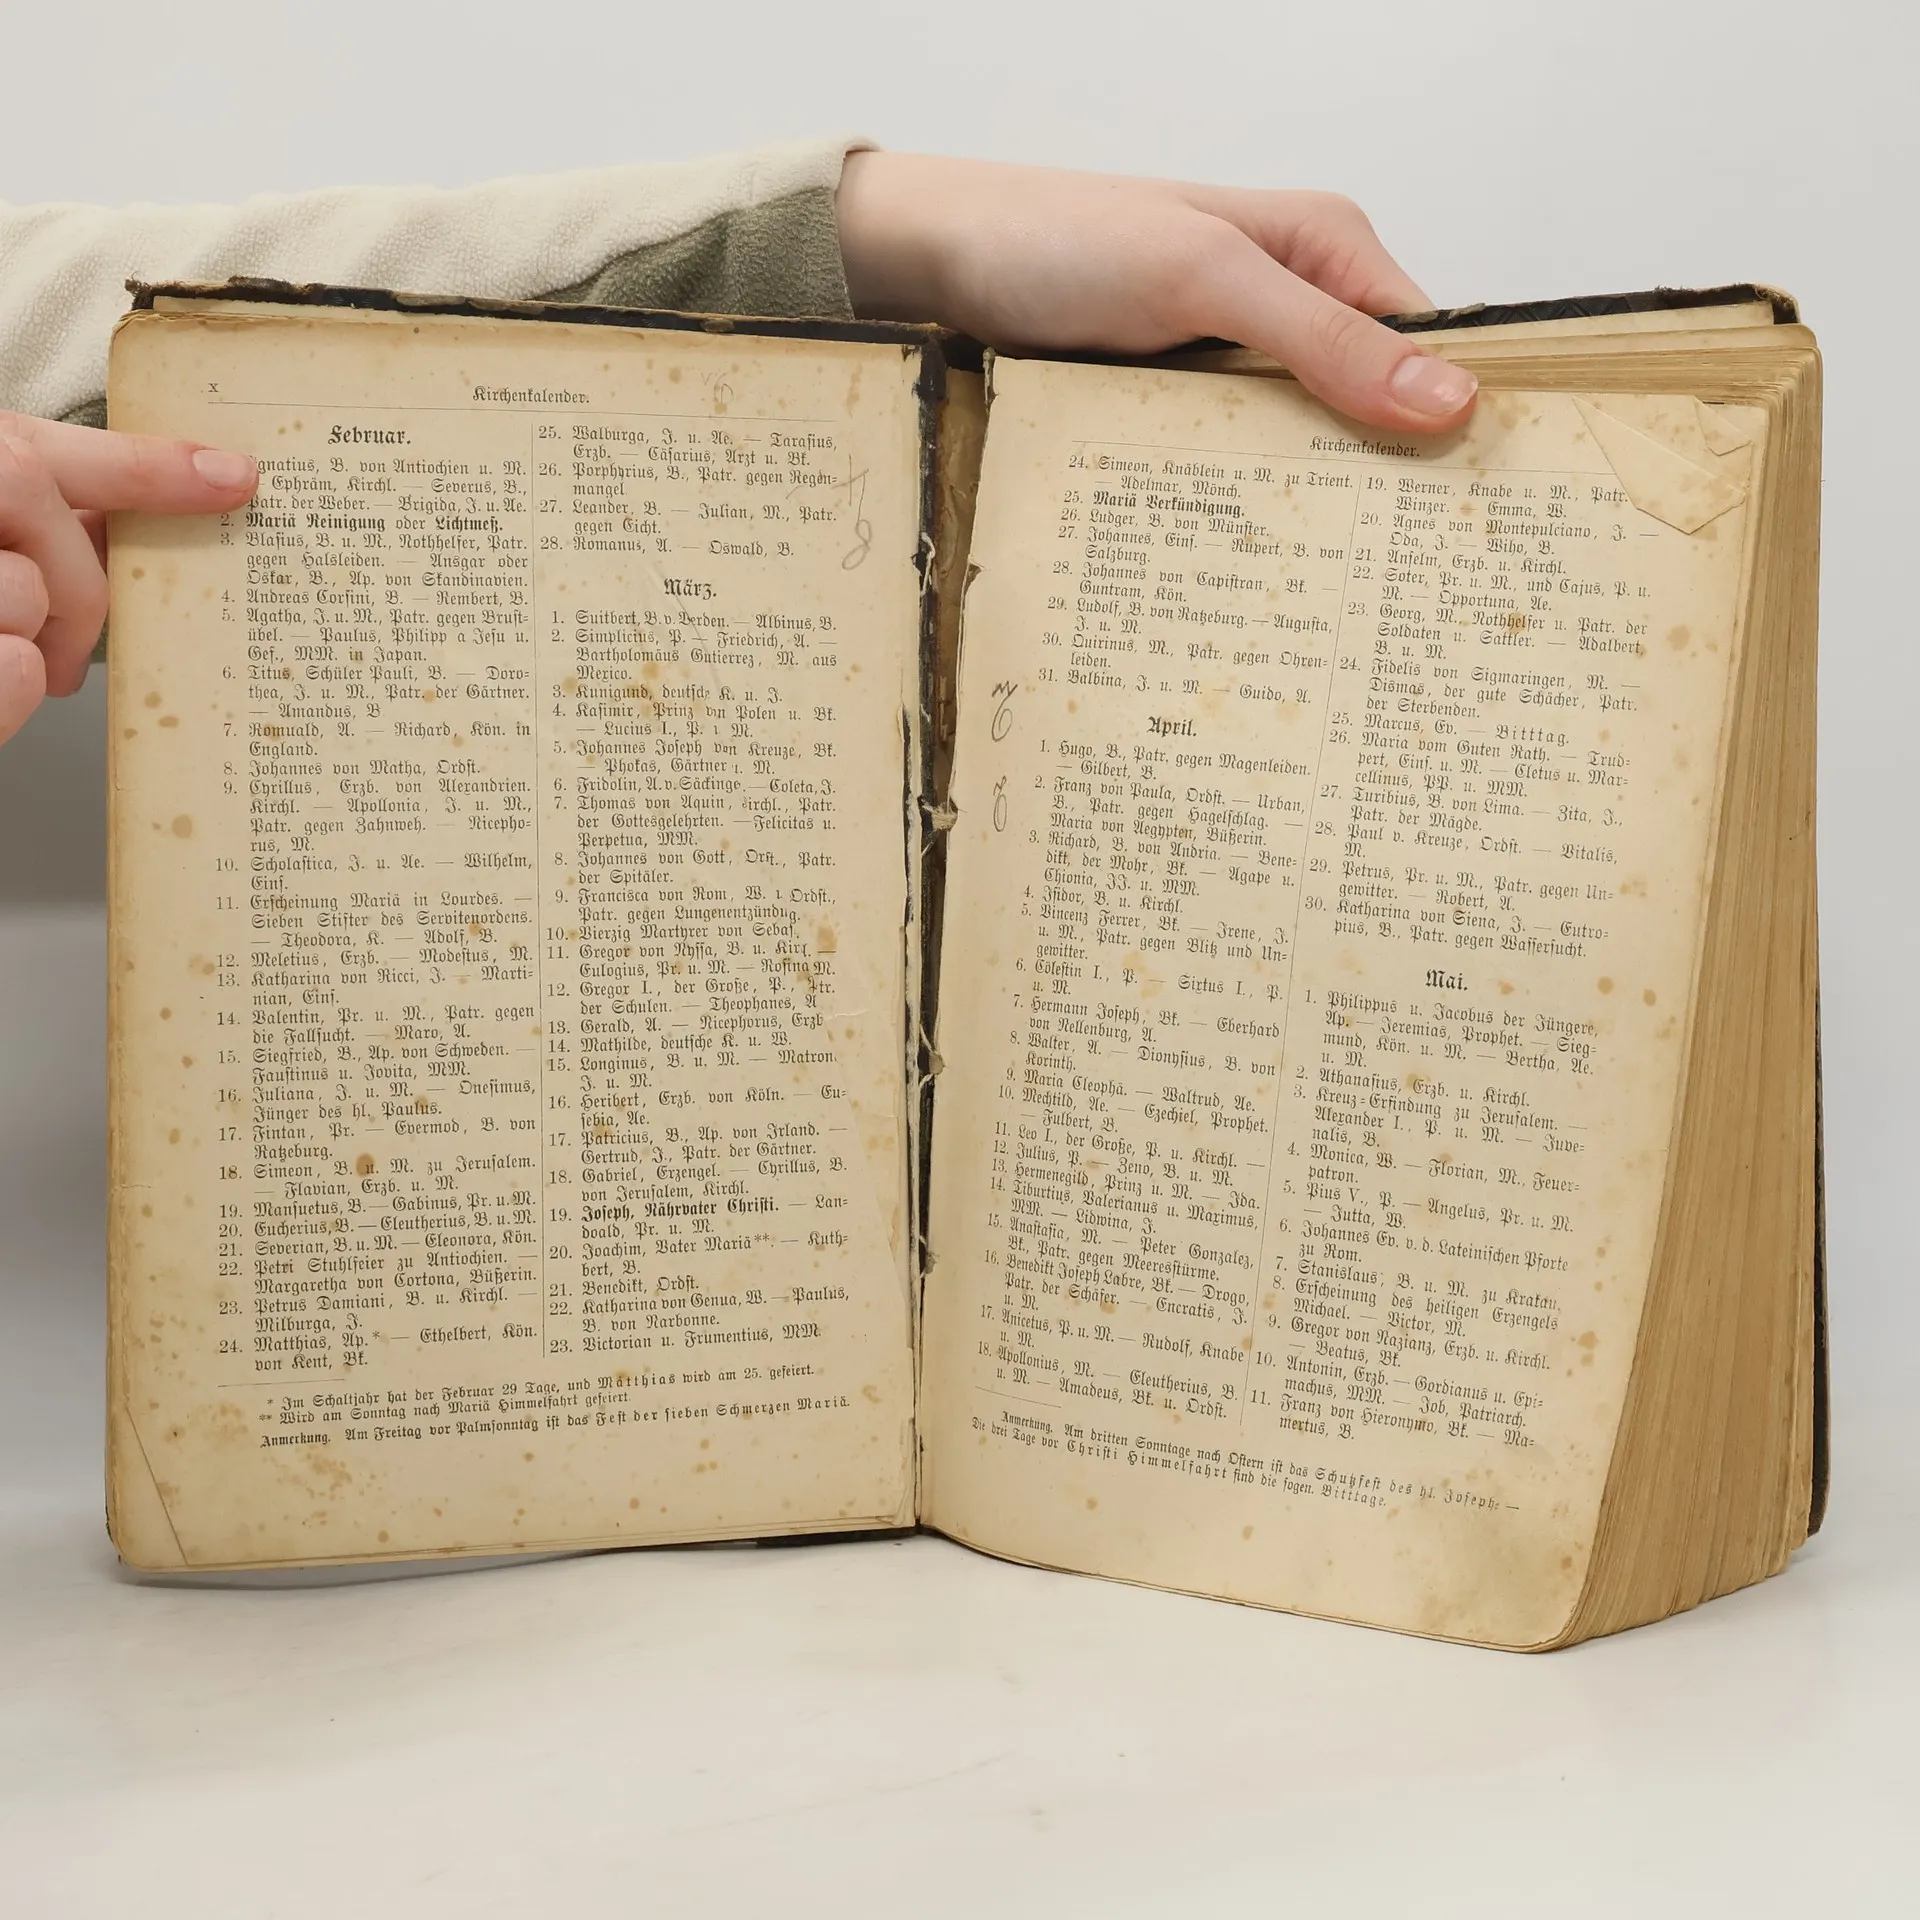 x
Kirchenkalender.
Februar.
gnatius, B. von Antiochien u. M.
Ephräm, Kirchl. — Severus, B.,
Patr. der Weber. — Brigida, J. u. Ae.
2. Mariä Reinigung oder Lichtmeß.
3. Blasius, B. u. M., Nothhelfer, Patr.
gegen Halsleiden. — Ansgar oder
Oskar, B., Ap. von Skandinavien.
4. Andreas Corsini, B. — Rembert, B.
5. Agatha, J. u. M., Patr. gegen Brust-
übel. — Paulus, Philipp a Jesu u.
Gef., MM. in Japan.
6. Titus, Schüler Pauli, B. — Doro-
thea, J. u. M., Patr. der Gärtner.
— Amandus, B
7. Romuald, A. — Richard, Kön. in
England.
8. Johannes von Matha, Ordst.
9. Cyrillus, Erzb. von Alexandrien.
Kirchl. — Apollonia, J. u. M.,
Patr. gegen Zahnweh. — Nicepho-
rus, M.
10. Scholastica, J. u. Ae. — Wilhelm,
Eins.
11. Erscheinung Mariä in Lourdes. —
Sieben Stifter des Servitenordens.
— Theodora, K. — Adolf, B.
12. Meletius, Erzb. — Modestus, M.
13. Katharina von Ricci, J. — Marti-
nian, Eins.
14. Valentin, Pr. u. M., Patr. gegen
die Fallsucht. — Maro, A.
15. Siegfried, B., Ap. von Schweden. —
Faustinus u. Jovita, MM.
16. Juliana, J. u. M. — Onesimus,
Jünger des hl. Paulus.
17. Fintan, Pr. — Evermod, B. von
Ratzeburg.
18. Simeon, B. u. M. zu Jerusalem.
— Flavian, Erzb. u. M.
19. Mansuetus, B. — Gabinus, Pr. u. M.
20. Eucherius, B. — Eleutherius, B. u. M.
21. Severian, B. u. M. — Eleonora, Kön.
22. Petri Stuhlfeier zu Antiochien. —
Margaretha von Cortona, Büßerin.
23. Petrus Damiani, B. u. Kirchl. —
Milburga, J.
24. Matthias, Ap.* — Ethelbert, Kön.
von Kent, Bk.
25. Walburga, J. u. Ae. — Tarasius,
Erzb. — Cäsarius, Arzt u. Bk.
26. Porphyrius, B., Patr. gegen Regen-
mangel
27. Leander, B. — Julian, M., Patr.
gegen Gicht.
28. Romanus, A. — Oswald, B.
März.
1. Suitbert, B. v. Verden. — Albinus, B.
2. Simplicius, P. — Friedrich, A. —
Bartholomäus Gutierrez, M. aus
Mexico.
3. Kunigund, deutsche K. u. J.
4. Kasimir, Prinz von Polen u. Bk.
— Lucius I., P. M.
5. Johannes Joseph von Kreuze, Bk.
— Phokas, Gärtner M.
6. Fridolin, A. v. Säckinge. — Coleta, J.
7. Thomas von Aquin, Kirchl., Patr.
der Gottesgelehrten. — Felicitas u.
Perpetua, MM.
8. Johannes von Gott, Orst., Patr.
der Spitäler.
9. Francisca von Rom, W. Ordst.,
Patr. gegen Lungenentzündug.
10. Vierzig Martyrer von Sebas.
11. Gregor von Nyssa, B. u. Kirl. —
Eulogius, Pr. u. M. — Rosina M.
12. Gregor I., der Große, P., Ptr.
der Schulen. — Theophanes, A
13. Gerald, A. — Nicephorus, Erzb
14. Mathilde, deutsche K. u. W.
15. Longinus, B. u. M. — Matron
J. u. M.
16. Heribert, Erzb. von Köln. — Eu-
sebia, Ae.
17. Patricius, B., Ap. von Irland. —
Gertrud, J., Patr. der Gärtner.
18. Gabriel, Erzengel. — Cyrillus, B.
von Jerusalem, Kirchl.
19. Joseph, Nährvater Christi. — Lan-
doald, Pr. u. M.
20. Joachim, Vater Mariä**. — Kuth-
bert, B.
21. Benedikt, Ordst.
22. Katharina von Genua, W. — Paulus,
B. von Narbonne.
23. Victorian u. Frumentius, MM.
* Im Schaltjahr hat der Februar 29 Tage, und Matthias wird am 25. gefeiert.
** Wird am Sonntag nach Mariä Himmelfahrt gefeiert.
Anmerkung. Am Freitag vor Palmsonntag ist das Fest der sieben Schmerzen Mariä.
Kirchenkalender.
24. Simeon, Knäblein u. M. zu Trient.
— Adelmar, Mönch.
25. Mariä Verkündigung.
26. Ludger, B. von Münster.
27. Johannes, Eins. — Rupert, B. von
Salzburg.
28. Johannes von Capistran, Bk. —
Guntram, Kön.
29. Ludolf, B. von Ratzeburg. — Augusta,
J. u. M.
30. Quirinus, M., Patr. gegen Ohren-
leiden.
31. Balbina, J. u. M. — Guido, A.
April.
1. Hugo, B., Patr. gegen Magenleiden.
— Gilbert, B.
2. Franz von Paula, Ordst. — Urban,
B., Patr. gegen Hagelschlag. —
Maria von Aegypten, Büßerin.
3. Richard, B. von Andria. — Bene-
dikt, der Mohr, Bk. — Agape u.
Chionia, JJ. u. MM.
4. Isidor, B. u. Kirchl.
5. Vincenz Ferrer, Bk. — Irene, J.
u. M., Patr. gegen Blitz und Un-
gewitter.
6. Cölestin I., P. — Sixtus I., P.
u. M.
7. Hermann Joseph, Bk. — Eberhard
von Nellenburg, A.
8. Walter, A. — Dionysius, B. von
Korinth.
9. Maria Cleophä. — Waltrud, Ae.
10. Mechtild, Ae. — Ezechiel, Prophet.
— Fulbert, B.
11. Leo I., der Große, P. u. Kirchl. —
12. Julius, P. — Zeno, B. u. M.
13. Hermenegild, Prinz u. M. — Ida.
14. Tiburtius, Valerianus u. Maximus,
MM. — Lidwina, J.
15. Anastasia, M. — Peter Gonzalez,
Bk., Patr. gegen Meeresstürme.
16. Benedikt Joseph Labre, Bk. — Drogo,
Patr. der Schäfer. — Encratis, J.
u. M.
17. Anicetus, P. u. M. — Rudolf, Knabe
u. M.
18. Apollonius, M. — Eleutherius, B.
u. M. — Amadeus, Bk. u. Ordst.
19. Werner, Knabe u. M., Patr.
Winzer. — Emma, W.
20. Agnes von Montepulciano, J. —
Oda, J. — Wiho, B.
21. Anselm, Erzb. u. Kirchl.
22. Soter, Pr. u. M., und Cajus, P. u.
M. — Opportuna, Ae.
23. Georg, M., Nothhelfer u. Patr. der
Soldaten u. Sattler. — Adalbert,
B. u. M.
24. Fidelis von Sigmaringen, M. —
Dismas, der gute Schächer, Patr.
der Sterbenden.
25. Marcus, Ev. — Bitttag.
26. Maria vom Guten Rath. — Trud-
pert, Eins. u. M. — Cletus u. Mar-
cellinus, PP. u. MM.
27. Turibius, B. von Lima. — Zita, J.,
Patr. der Mägde.
28. Paul v. Kreuze, Ordst. — Vitalis,
M.
29. Petrus, Pr. u. M., Patr. gegen Un-
gewitter. — Robert, A.
30. Katharina von Siena, J. — Eutro-
pius, B., Patr. gegen Wassersucht.
Mai.
1. Philippus u. Jacobus der Jüngere,
Ap. — Jeremias, Prophet. — Sieg-
mund, Kön. u. M. — Bertha, Ae.
u. M.
2. Athanasius, Erzb. u. Kirchl.
3. Kreuz-Erfindung zu Jerusalem. —
Alexander I., P. u. M. — Juve-
nalis, B.
4. Monica, W. — Florian, M., Feuer-
patron.
5. Pius V., P. — Angelus, Pr. u. M.
— Jutta, W.
6. Johannes Ev. v. d. Lateinischen Pforte
zu Rom.
7. Stanislaus, B. u. M. zu Krakau.
8. Erscheinung des heiligen Erzengels
Michael. — Victor, M.
9. Gregor von Nazianz, Erzb. u. Kirchl.
— Beatus, Bk.
10. Antonin, Erzb. — Gordianus u. Epi-
machus, MM. — Job, Patriarch.
11. Franz von Hieronymo, Bk. — Ma-
mertus, B.
Anmerkung. Am dritten Sonntage nach Ostern ist das Schutzfest des hl. Joseph. —
Die drei Tage vor Christi Himmelfahrt sind die sogen. Bitttage.